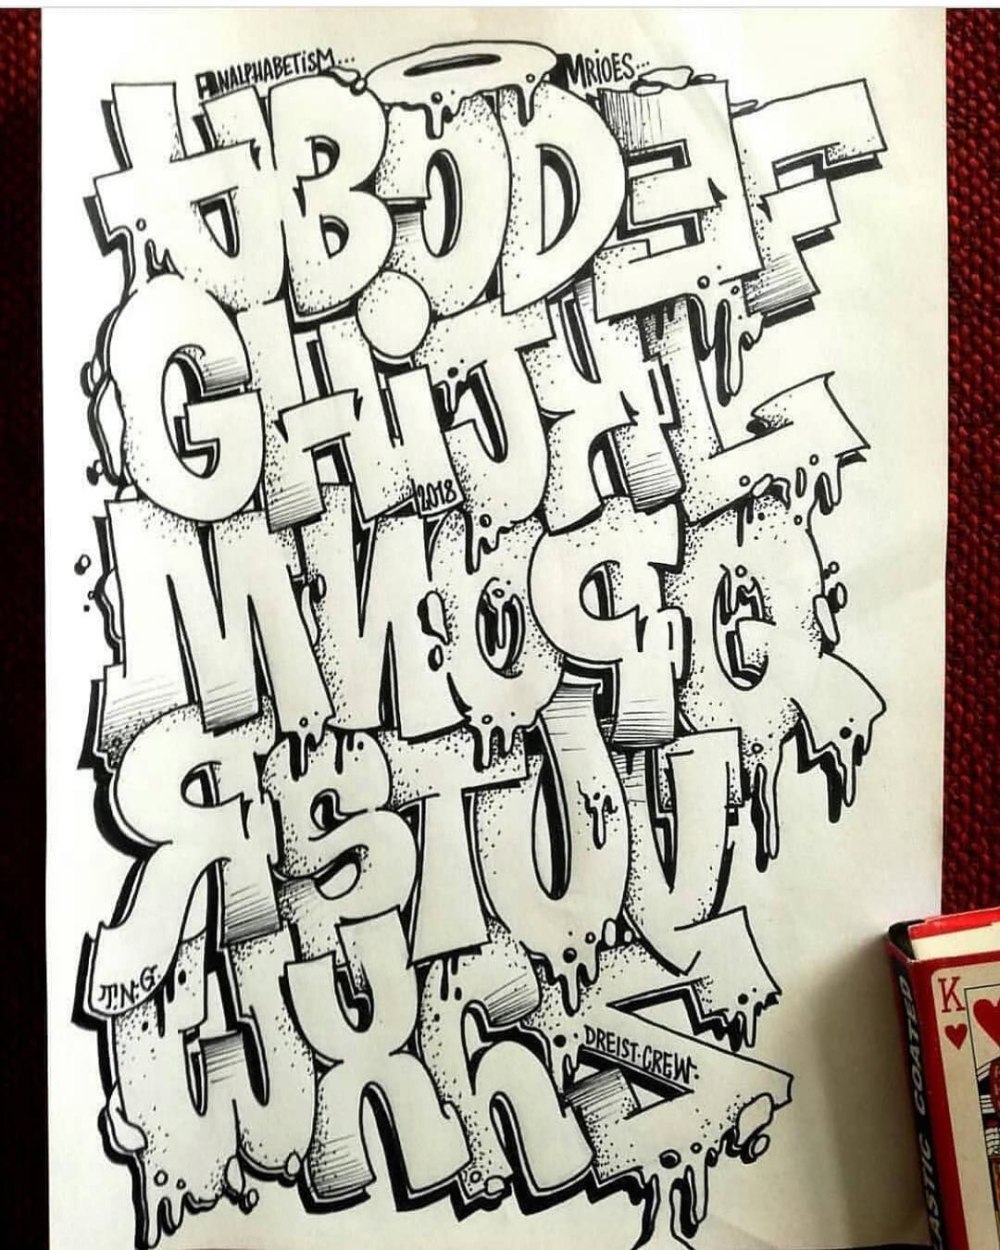 ANALPHABETISM... MRIOES...
ABCDEF
GHIJKL
2018
MNOPQ
RSTUV
T.N.G.
WXYZ
DREIST.CREW.
K
PLASTIC COATED